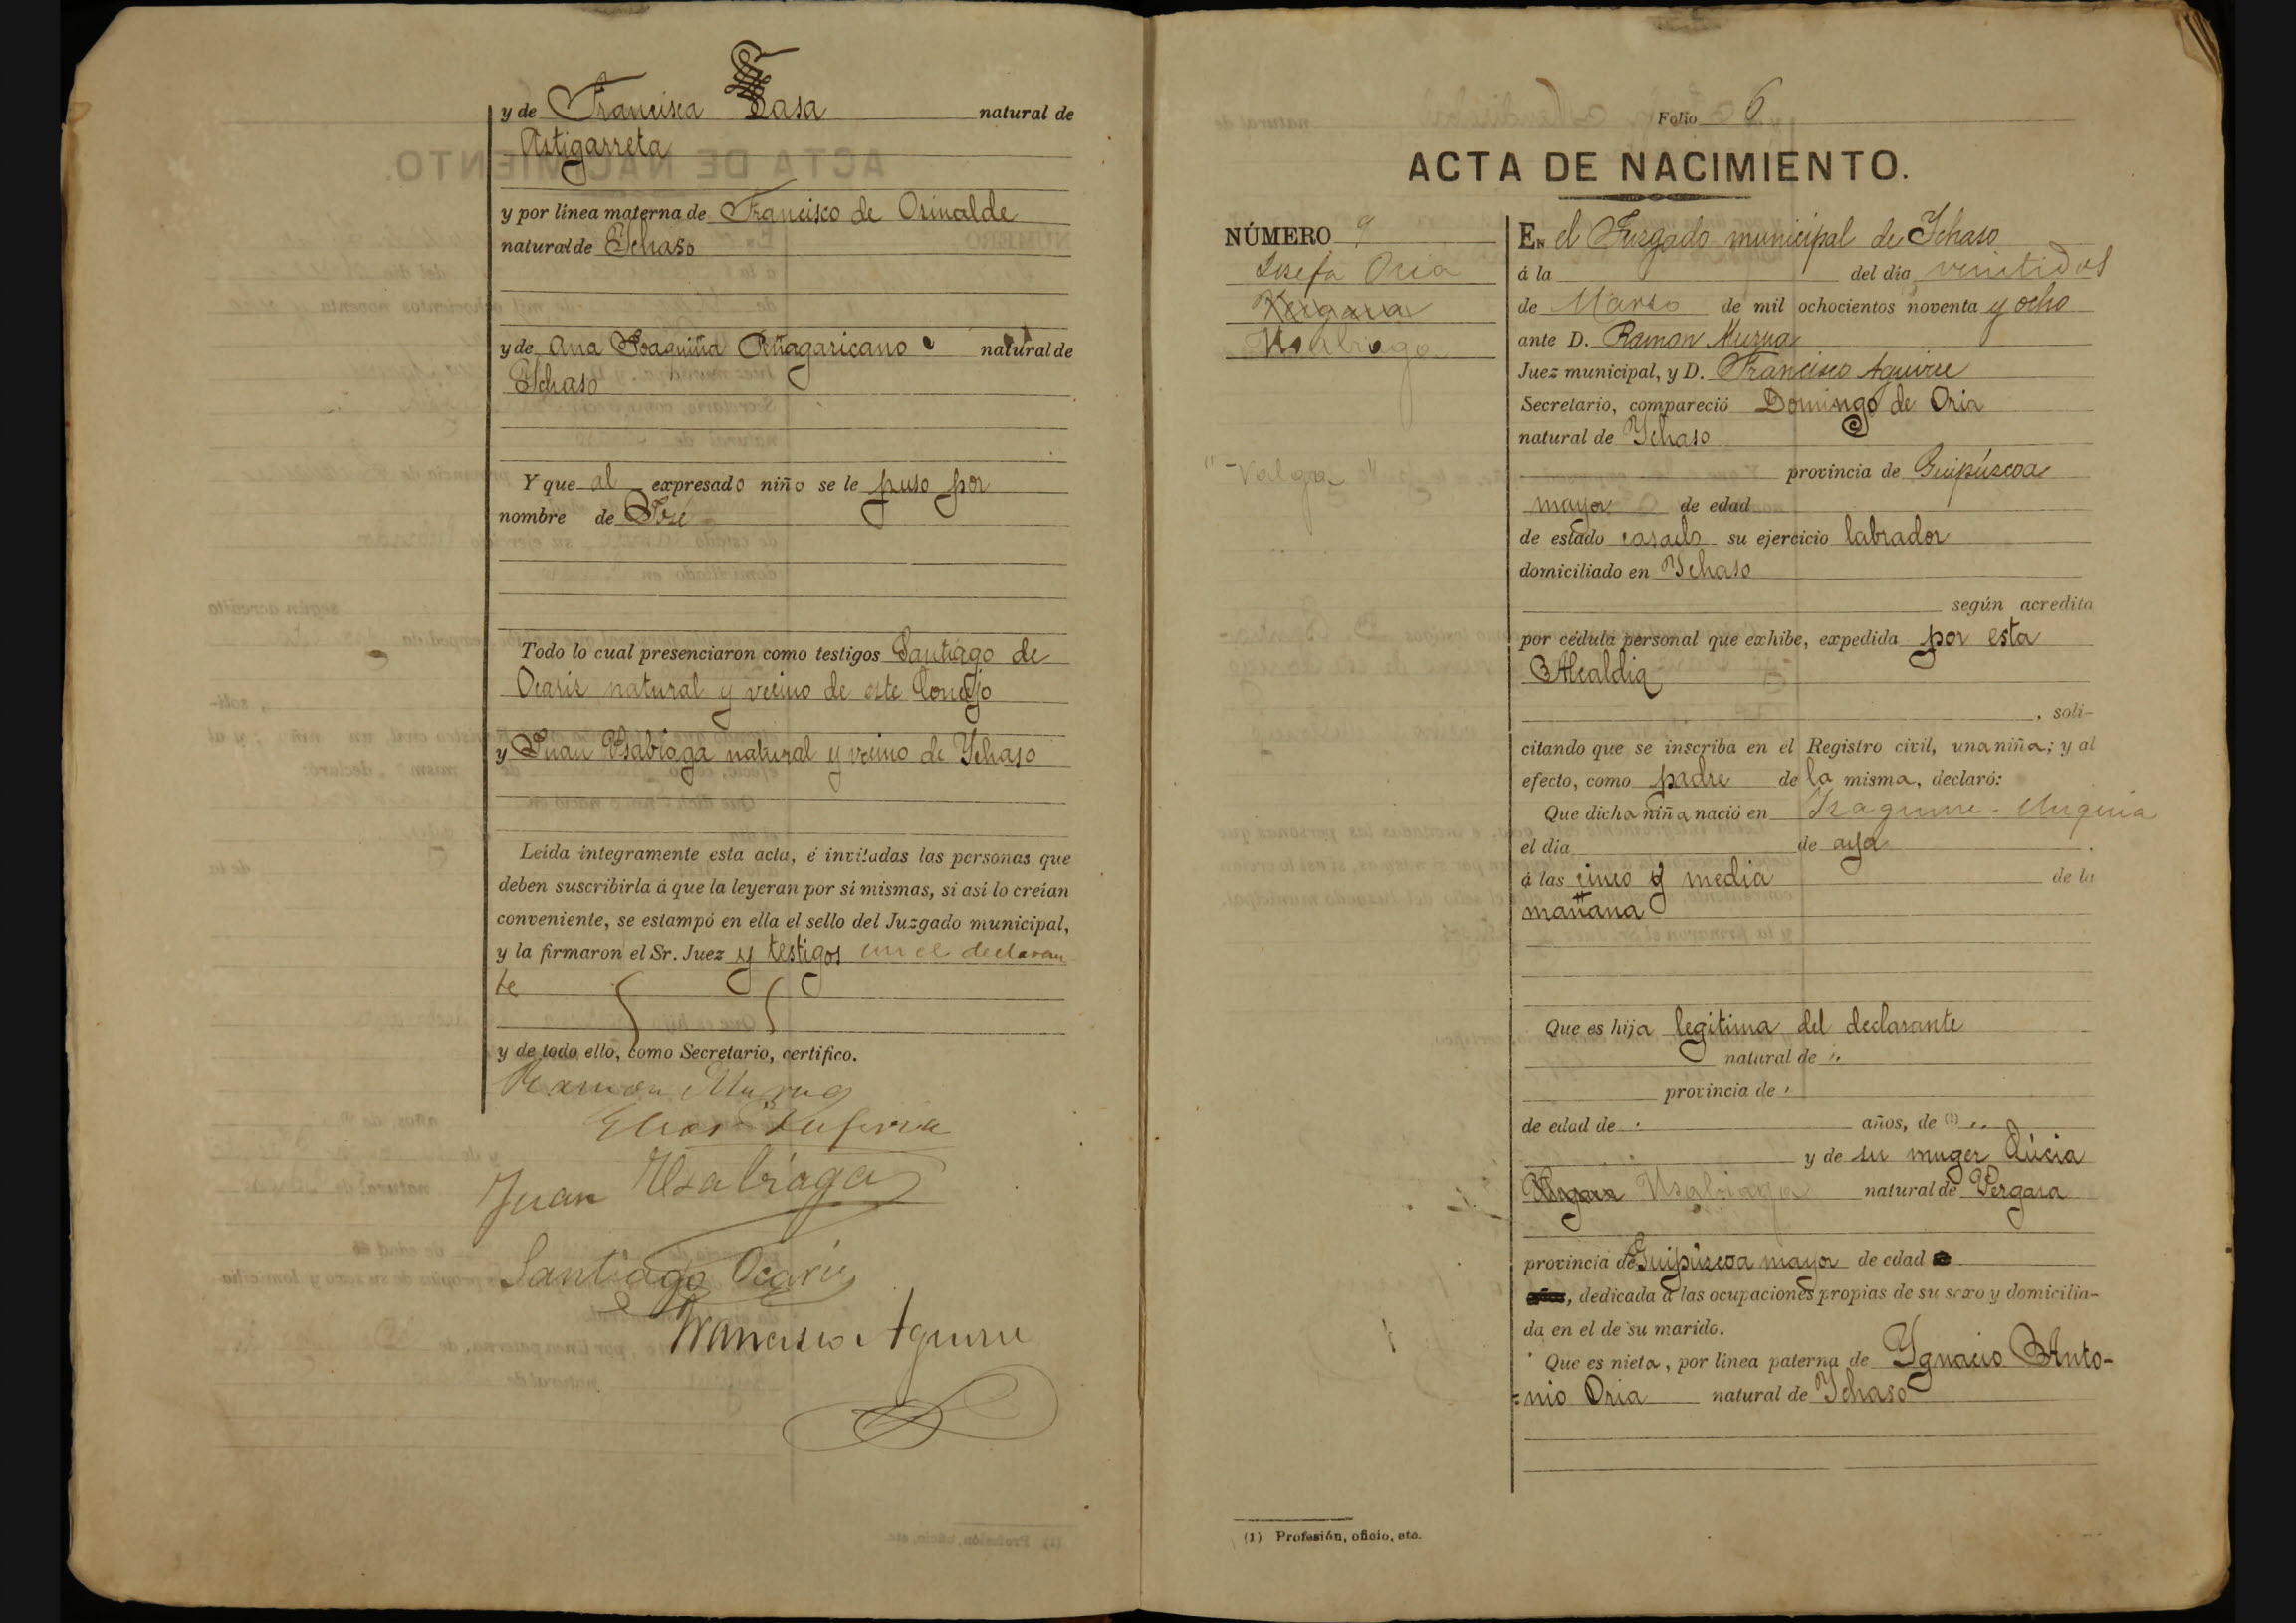 y de Francisca Lasa natural de
Astigarreta
y por línea materna de Francisco de Orinalde
natural de Ychaso
y de Ana Joaquina Oñagaricano natural de
Ychaso
Y que al expresado niño se le puso por
nombre de José
Todo lo cual presenciaron como testigos Santiago de
Ocariz natural y vecino de este Concejo
y Juan Usabiaga natural y vecino de Ychaso
Leída íntegramente esta acta, é invitadas las personas que
deben suscribirla á que la leyeran por sí mismas, si así lo creían
conveniente, se estampó en ella el sello del Juzgado municipal,
y la firmaron el Sr. Juez y testigos con el declaran
te
y de todo ello, como Secretario, certifico.
Ramon Murua
Juan Usabiaga
Santiago Ocariz
Francisco Aguirre
Folio 6
ACTA DE NACIMIENTO.
NÚMERO 9
Josefa Oria
Vergara
Usabiaga
"Valga"
EN el Juzgado municipal de Ychaso
á la del día veintidos
de Marzo de mil ochocientos noventa y ocho
ante D. Ramon Murua
Juez municipal, y D. Francisco Aguirre
Secretario, compareció Domingo de Oria
natural de Ychaso
provincia de Guipúscoa
mayor de edad
de estado casado su ejercicio labrador
domiciliado en Ychaso
según acredita
por cédula personal que exhibe, expedida por esta
Alcaldia
, soli-
citando que se inscriba en el Registro civil, una niña; y al
efecto, como padre de la misma, declaró:
Que dicha niña nació en
el día de aya .
á las cinco y media de la
mañana
Que es hija legitima del declarante
natural de ,,
provincia de ,
de edad de , años, de (1) ,,
y de su muger Lúcia
Vergara Usabiaga natural de Vergara
provincia de Guipúscoa mayor de edad
años, dedicada á las ocupaciones propias de su sexo y domicilia-
da en el de su marido.
Que es nieta, por línea paterna de Ygnacio Anto-
=nio Oria natural de Ychaso
(1) Profesión, oficio, etc.